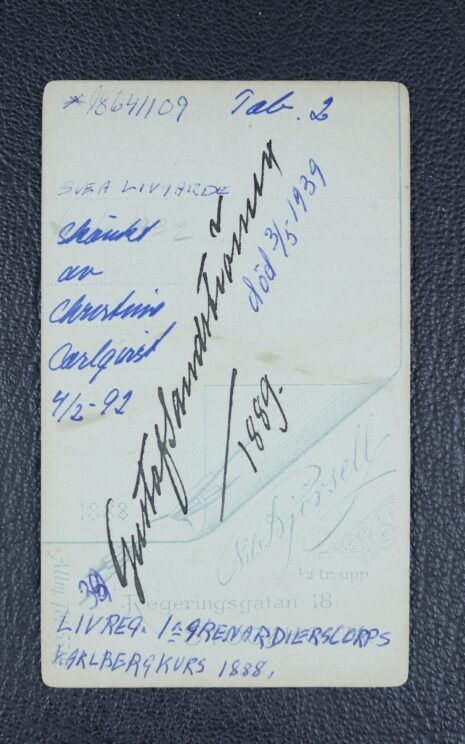 *1864 1/09 Tab. 2
SVEA LIVGARDE
Skänkt
av
Christina
Carlqvist
4/2-92
Gustaf Sandströmer
/1889.
död 3/5-1939
1888
Nils Björsell
½ tr. upp
Regeringsgatan 18
LIVREG. 1A GRENARDIERSCORPS
KARLBERGKURS 1888.